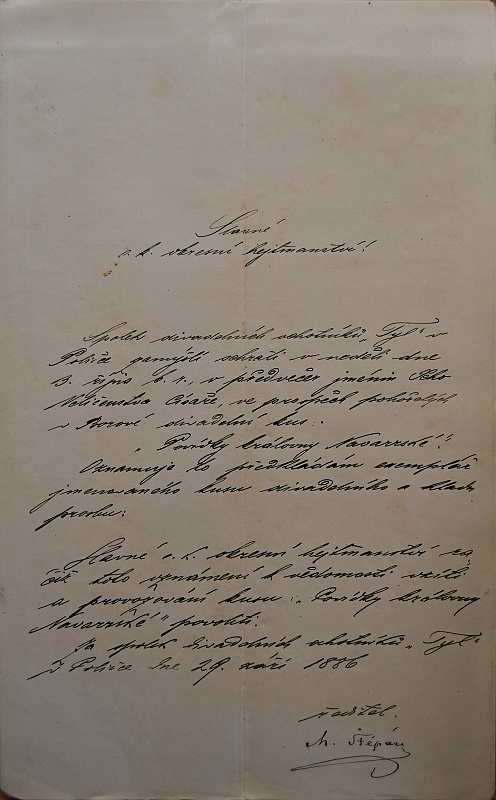 Slavné
c. k. okresní hejtmanství!
Spolek divadelních ochotníků „Tyl“ v
Poličce zamýšlí sehráti v neděli dne
3. října t. r., v předvečer jmenin Jeho
Veličenstva Císaře, ve prospěch pohořelých
v Borové divadelní kus:
„Povídky královny Navarrské“.
Oznamuje to předkládám exemplář
jmenovaného kusu divadelního a kladu
prosbu:
Slavné c. k. okresní hejtmanství ra-
čiž toto oznámení k vědomosti vzíti
a provozování kusu: „Povídky královny
Navarrské“ povoliti.
Za spolek divadelních ochotníků „Tyl“
V Poličce dne 29. září 1886
ředitel.
M. Štěpán